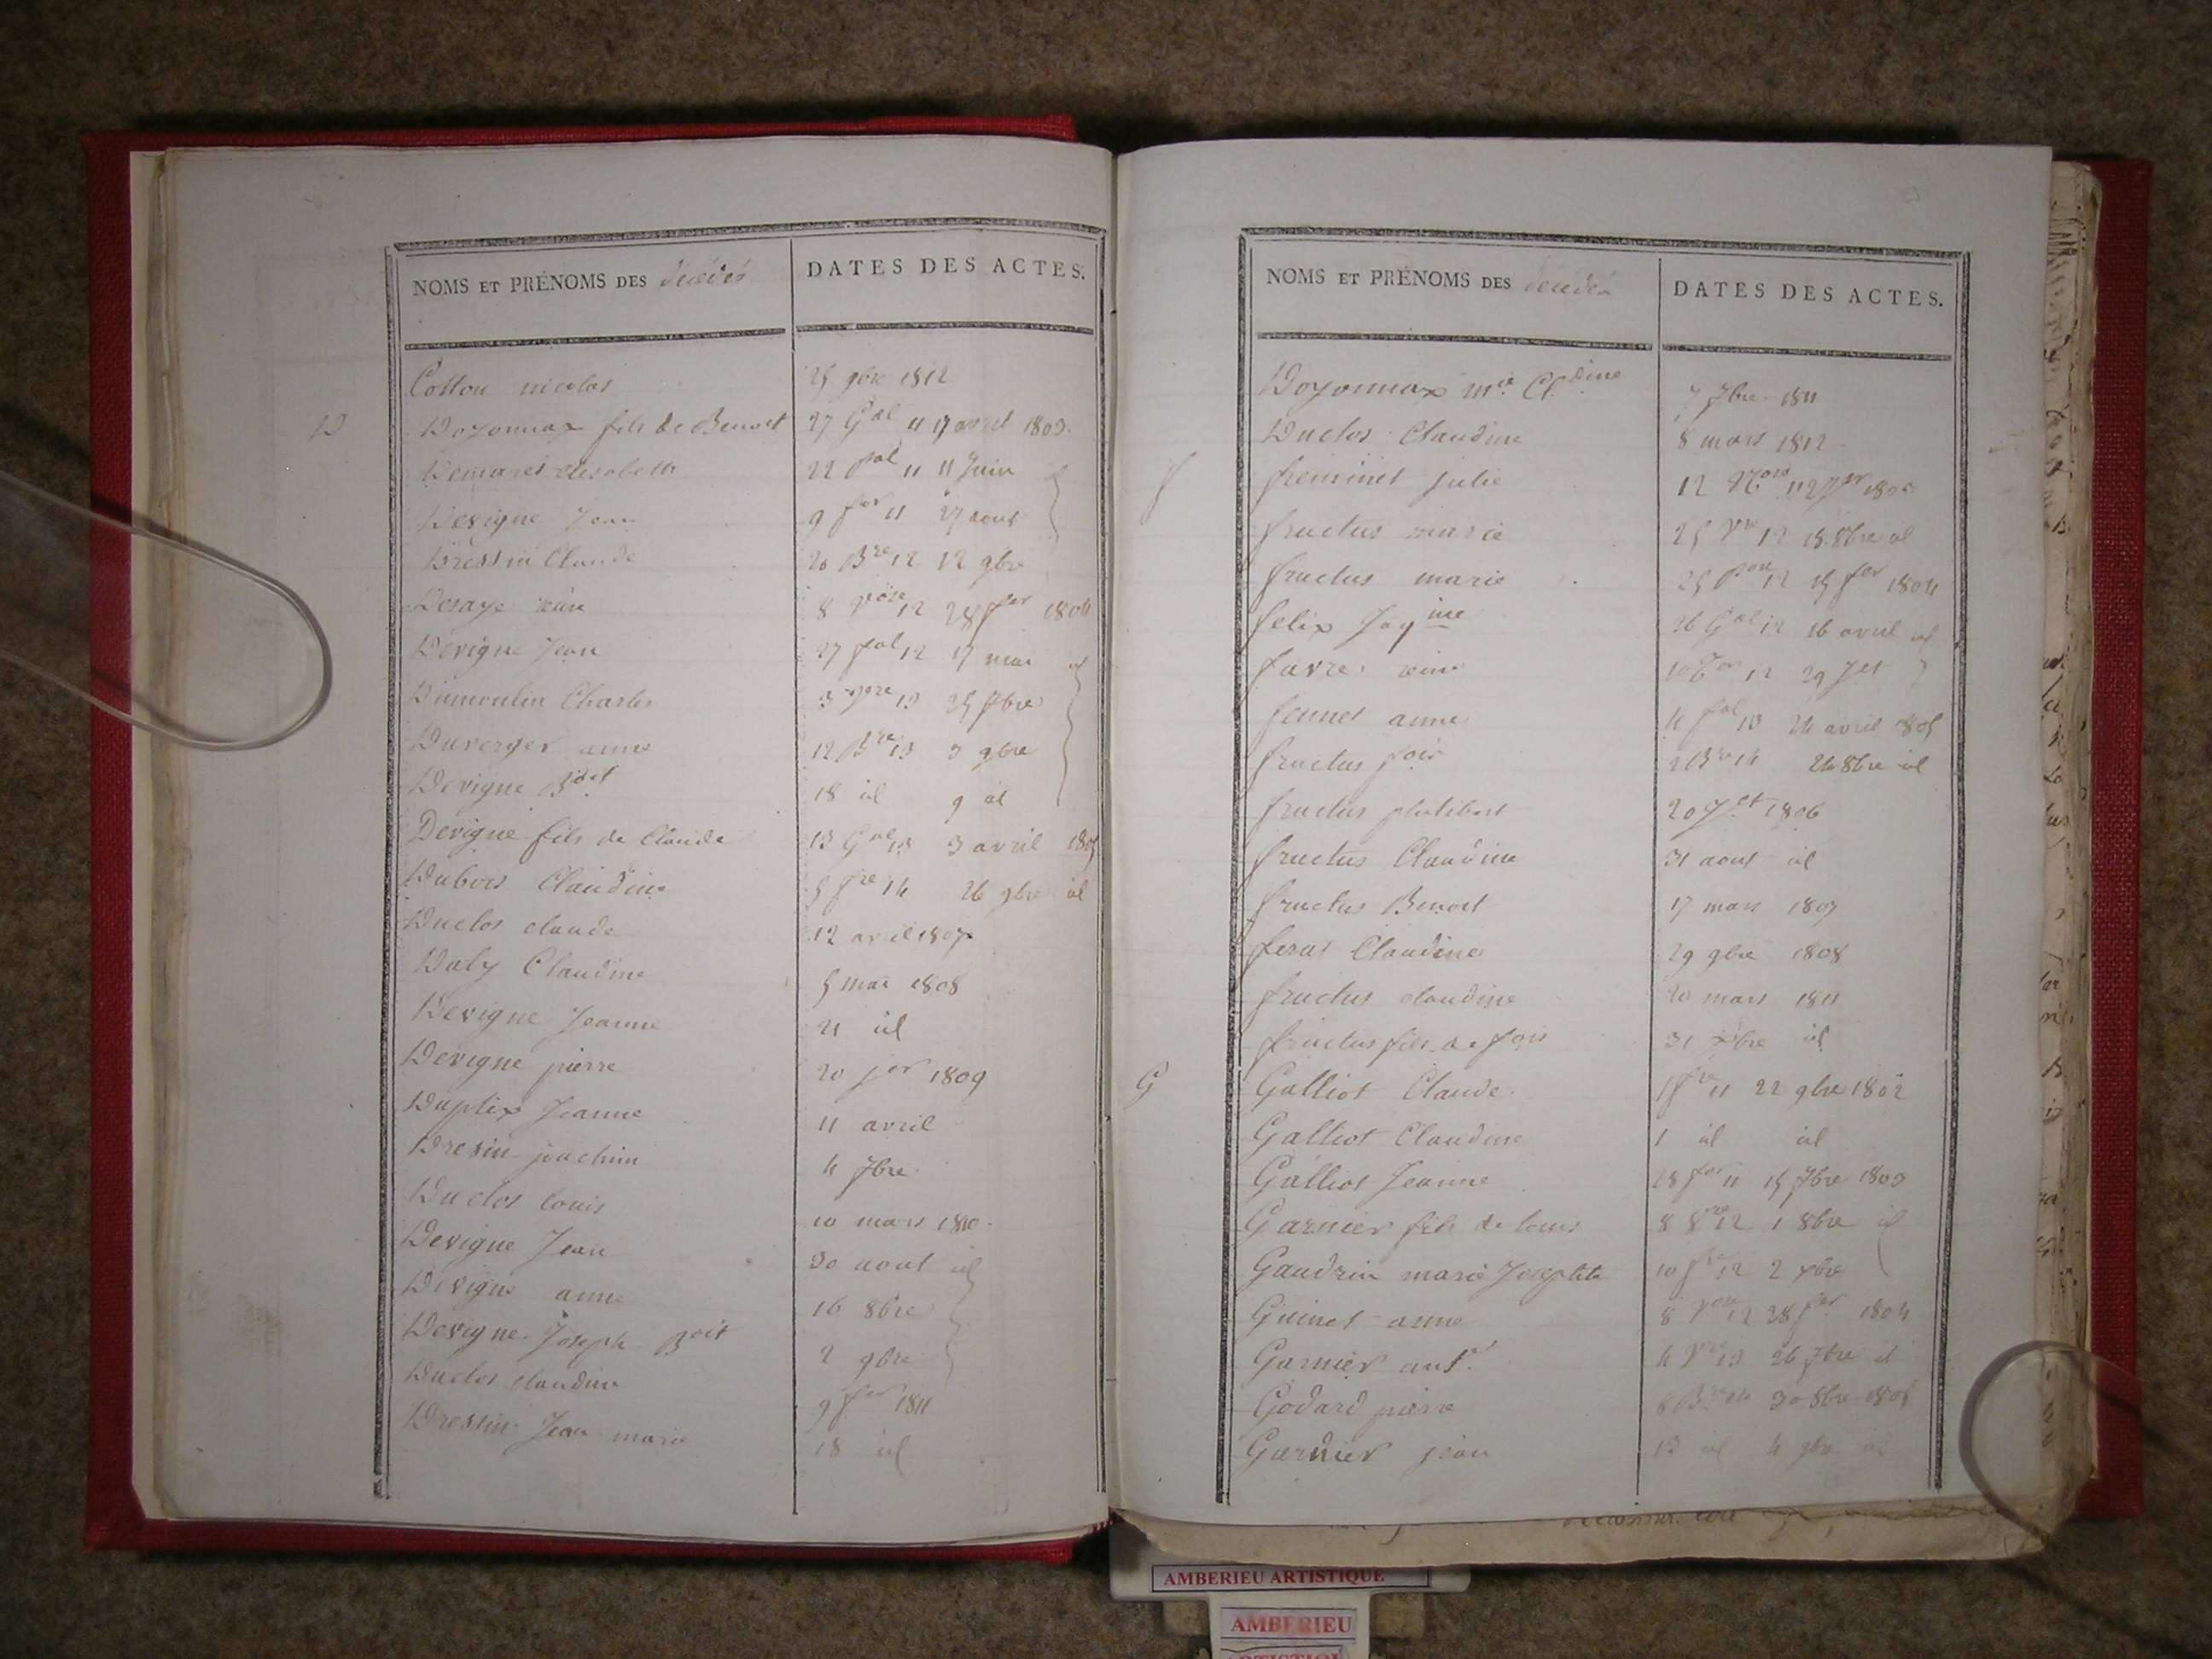 NOMS ET PRÉNOMS DES décédés
DATES DES ACTES.
Cottou nicolas 25 9bre 1812
D
Doyonnax fils de Benoit 27 Gal 11 17 avril 1803.
Demaret elisabeth 22 pal 11 11 Juin id
Devigne Jean 9 for 11 27 aout
Dressin Claude 20 Bre 12 12 9bre
Desaye reine 8 vose 12 28 fer 1804
Devigne Jean 27 pal 12 17 mai id
Dumoulin Charles 3 13 25 7bre
Duverger anne 12 Bre 13 3 9bre
Devigne Boit 18 id 9 id
Devigne fils de Claude 13 Gal 13 3 avril 1805
Dubois Claudine 5 fre 14 26 9bre id
Duclos claude 12 avril 1807
Daly Claudine 5 mai 1808
Devigne Jeanne 21 id
Devigne pierre 20 jer 1809
Duplix Jeanne 11 avril
Dresin joachim 4 7bre
Duclos louis 10 mars 1810
Devigne Jean 30 aout id
Devigne anne 16 8bre
Devigne Joseph Boit 2 9bre
Duclos claudine 9 fer 1811
Dressin Jean marie 18 id
NOMS ET PRÉNOMS DES décédés
DATES DES ACTES.
Doyonnax mie Cl.dine 7 7bre 1811
Duclos Claudine 8 mars 1812
f
freminet julie 12
fructus marie 25 12 18 8bre id
fructus marie 25 12 15 fer 1804
felix Jaqine 26 Gal 12 16 avril id
favre reine 10 12 29 Jet
fennet anne 4 fal 13 24 avril 1805
fructus fois 2 Bre 14 24 8bre id
fructus philibert 20 Jet 1806
fructus Claudine 31 aout id
fructus Benoit 17 mars 1807
feras Claudine 29 9bre 1808
fructus claudine 20 mars 1811
fructus fils de fois 31 xbre id
G
Galliot Claude 1 fre 11 22 9bre 1802
Galliot Claudine 1 id id
Galliot Jeanne 28 for 11 15 7bre 1803
Garnier fils de louis 8 vre 12 1 8bre id
Gaudrin marie Josephte 10 fre 12 2 xbre
Guinet anne 8 vose 12 28 fer 1804
Garnier ant.e 4 vre 13 26 7bre id
Godard pierre 8 Bre 14 30 8bre 1805
Garnier jean 13 id 4 9bre id
AMBERIEU ARTISTIQUE
AMBERIEU